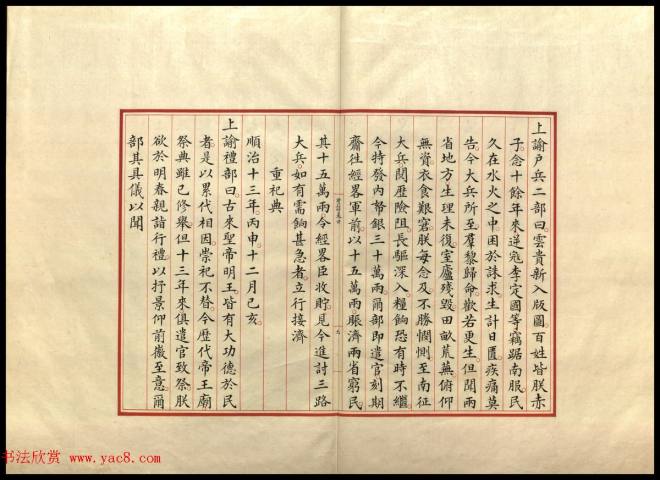 上諭户兵二部曰雲貴新入版圖百姓皆朕赤
子念十餘年來逆寇李定國等竊踞南服民
久在水火之中困於誅求生計日匱疾痛莫
告今大兵所至羣黎歸命歡若更生但聞兩
省地方生理未復室廬殘毀田畝荒蕪俯仰
無資衣食艱窘朕每念及不勝憫惻至南征
大兵閱歷險阻長驅深入糧餉恐有時不繼
今特發内帑銀三十萬兩爾部即遣官刻期
齎往經畧軍前以十五萬兩賑濟兩省窮民
其十五萬兩令經畧臣收貯見今進討三路
大兵如有需餉甚急者立行接濟
重祀典
順治十三年丙申十二月己亥
上諭禮部曰古來聖帝明王皆有大功德於民
者是以累代相因崇祀不替今歷代帝王廟
祭典雖已修舉但十三年來俱遣官致祭朕
欲於明春親詣行禮以抒景仰前徽至意爾
部其具儀以聞
书法欣赏 www.yac8.com